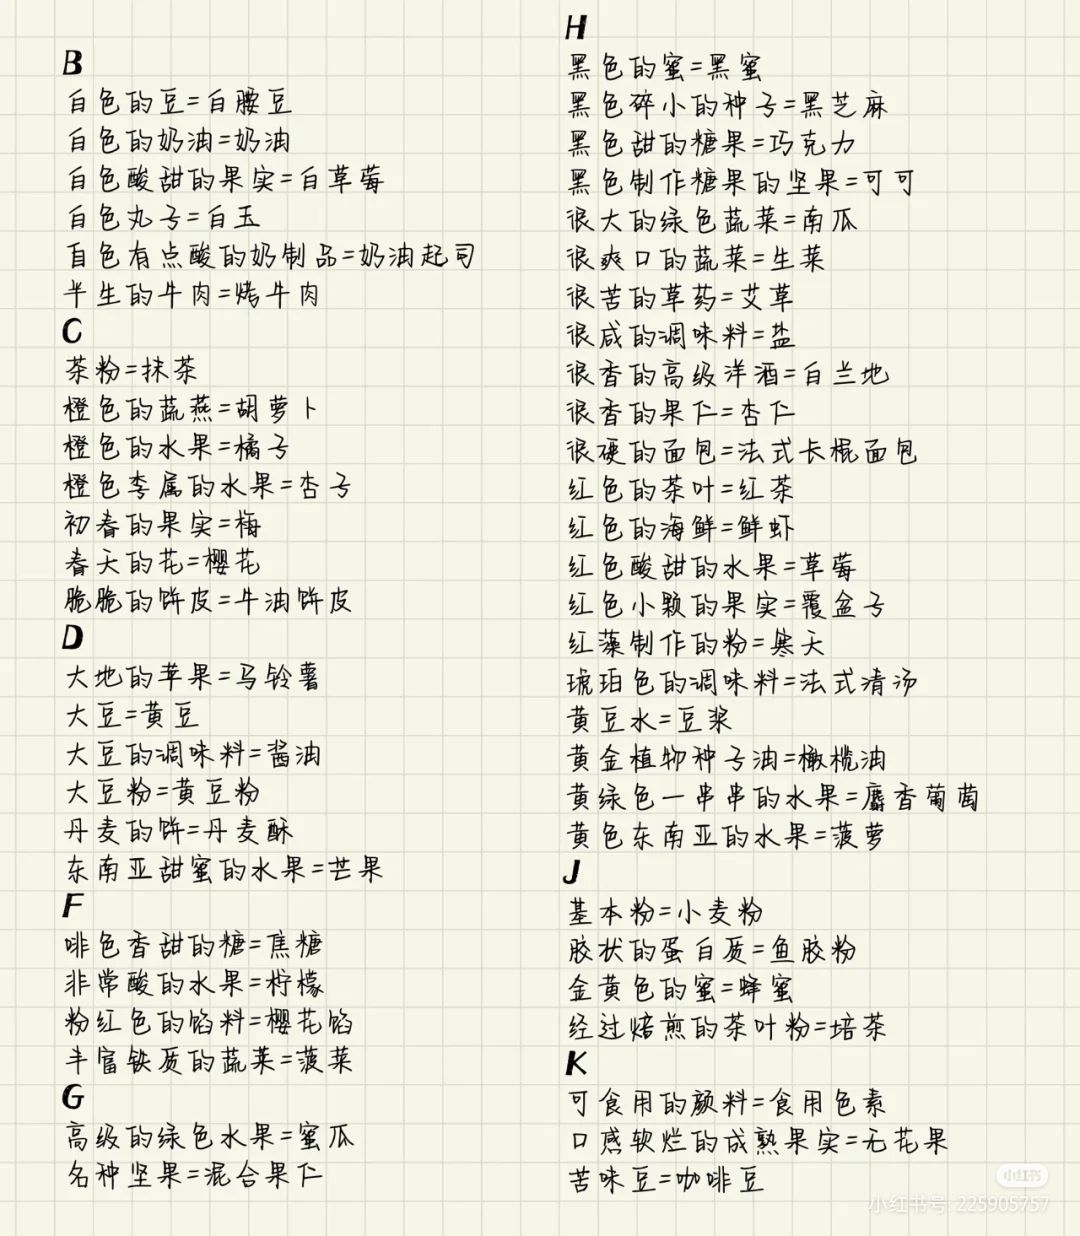 B
白色的豆=白腰豆
白色的奶油=奶油
白色酸甜的果实=白草莓
白色丸子=白玉
白色有点酸的奶制品=奶油起司
半生的牛肉=烤牛肉
C
茶粉=抹茶
橙色的蔬燕=胡萝卜
橙色的水果=橘子
橙色李属的水果=杏子
初春的果实=梅
春天的花=樱花
脆脆的饼皮=牛油饼皮
D
大地的苹果=马铃薯
大豆=黄豆
大豆的调味料=酱油
大豆粉=黄豆粉
丹麦的饼=丹麦酥
东南亚甜蜜的水果=芒果
F
啡色香甜的糖=焦糖
非常酸的水果=柠檬
粉红色的馅料=樱花馅
丰富铁质的蔬菜=菠菜
G
高级的绿色水果=蜜瓜
各种坚果=混合果仁
H
黑色的蜜=黑蜜
黑色碎小的种子=黑芝麻
黑色甜的糖果=巧克力
黑色制作糖果的坚果=可可
很大的绿色蔬菜=南瓜
很爽口的蔬菜=生菜
很苦的草药=艾草
很咸的调味料=盐
很香的高级洋酒=白兰地
很香的果仁=杏仁
很硬的面包=法式长棍面包
红色的茶叶=红茶
红色的海鲜=鲜虾
红色酸甜的水果=草莓
红色小颗的果实=覆盆子
红藻制作的粉=寒天
琥珀色的调味料=法式清汤
黄豆水=豆浆
黄金植物种子油=橄榄油
黄绿色一串串的水果=麝香葡萄
黄色东南亚的水果=菠萝
J
基本粉=小麦粉
胶状的蛋白质=鱼胶粉
金黄色的蜜=蜂蜜
经过焙煎的茶叶粉=培茶
K
可食用的颜料=食用色素
口感软烂的成熟果实=无花果
苦味豆=咖啡豆
小红书
小红书号: 225905757